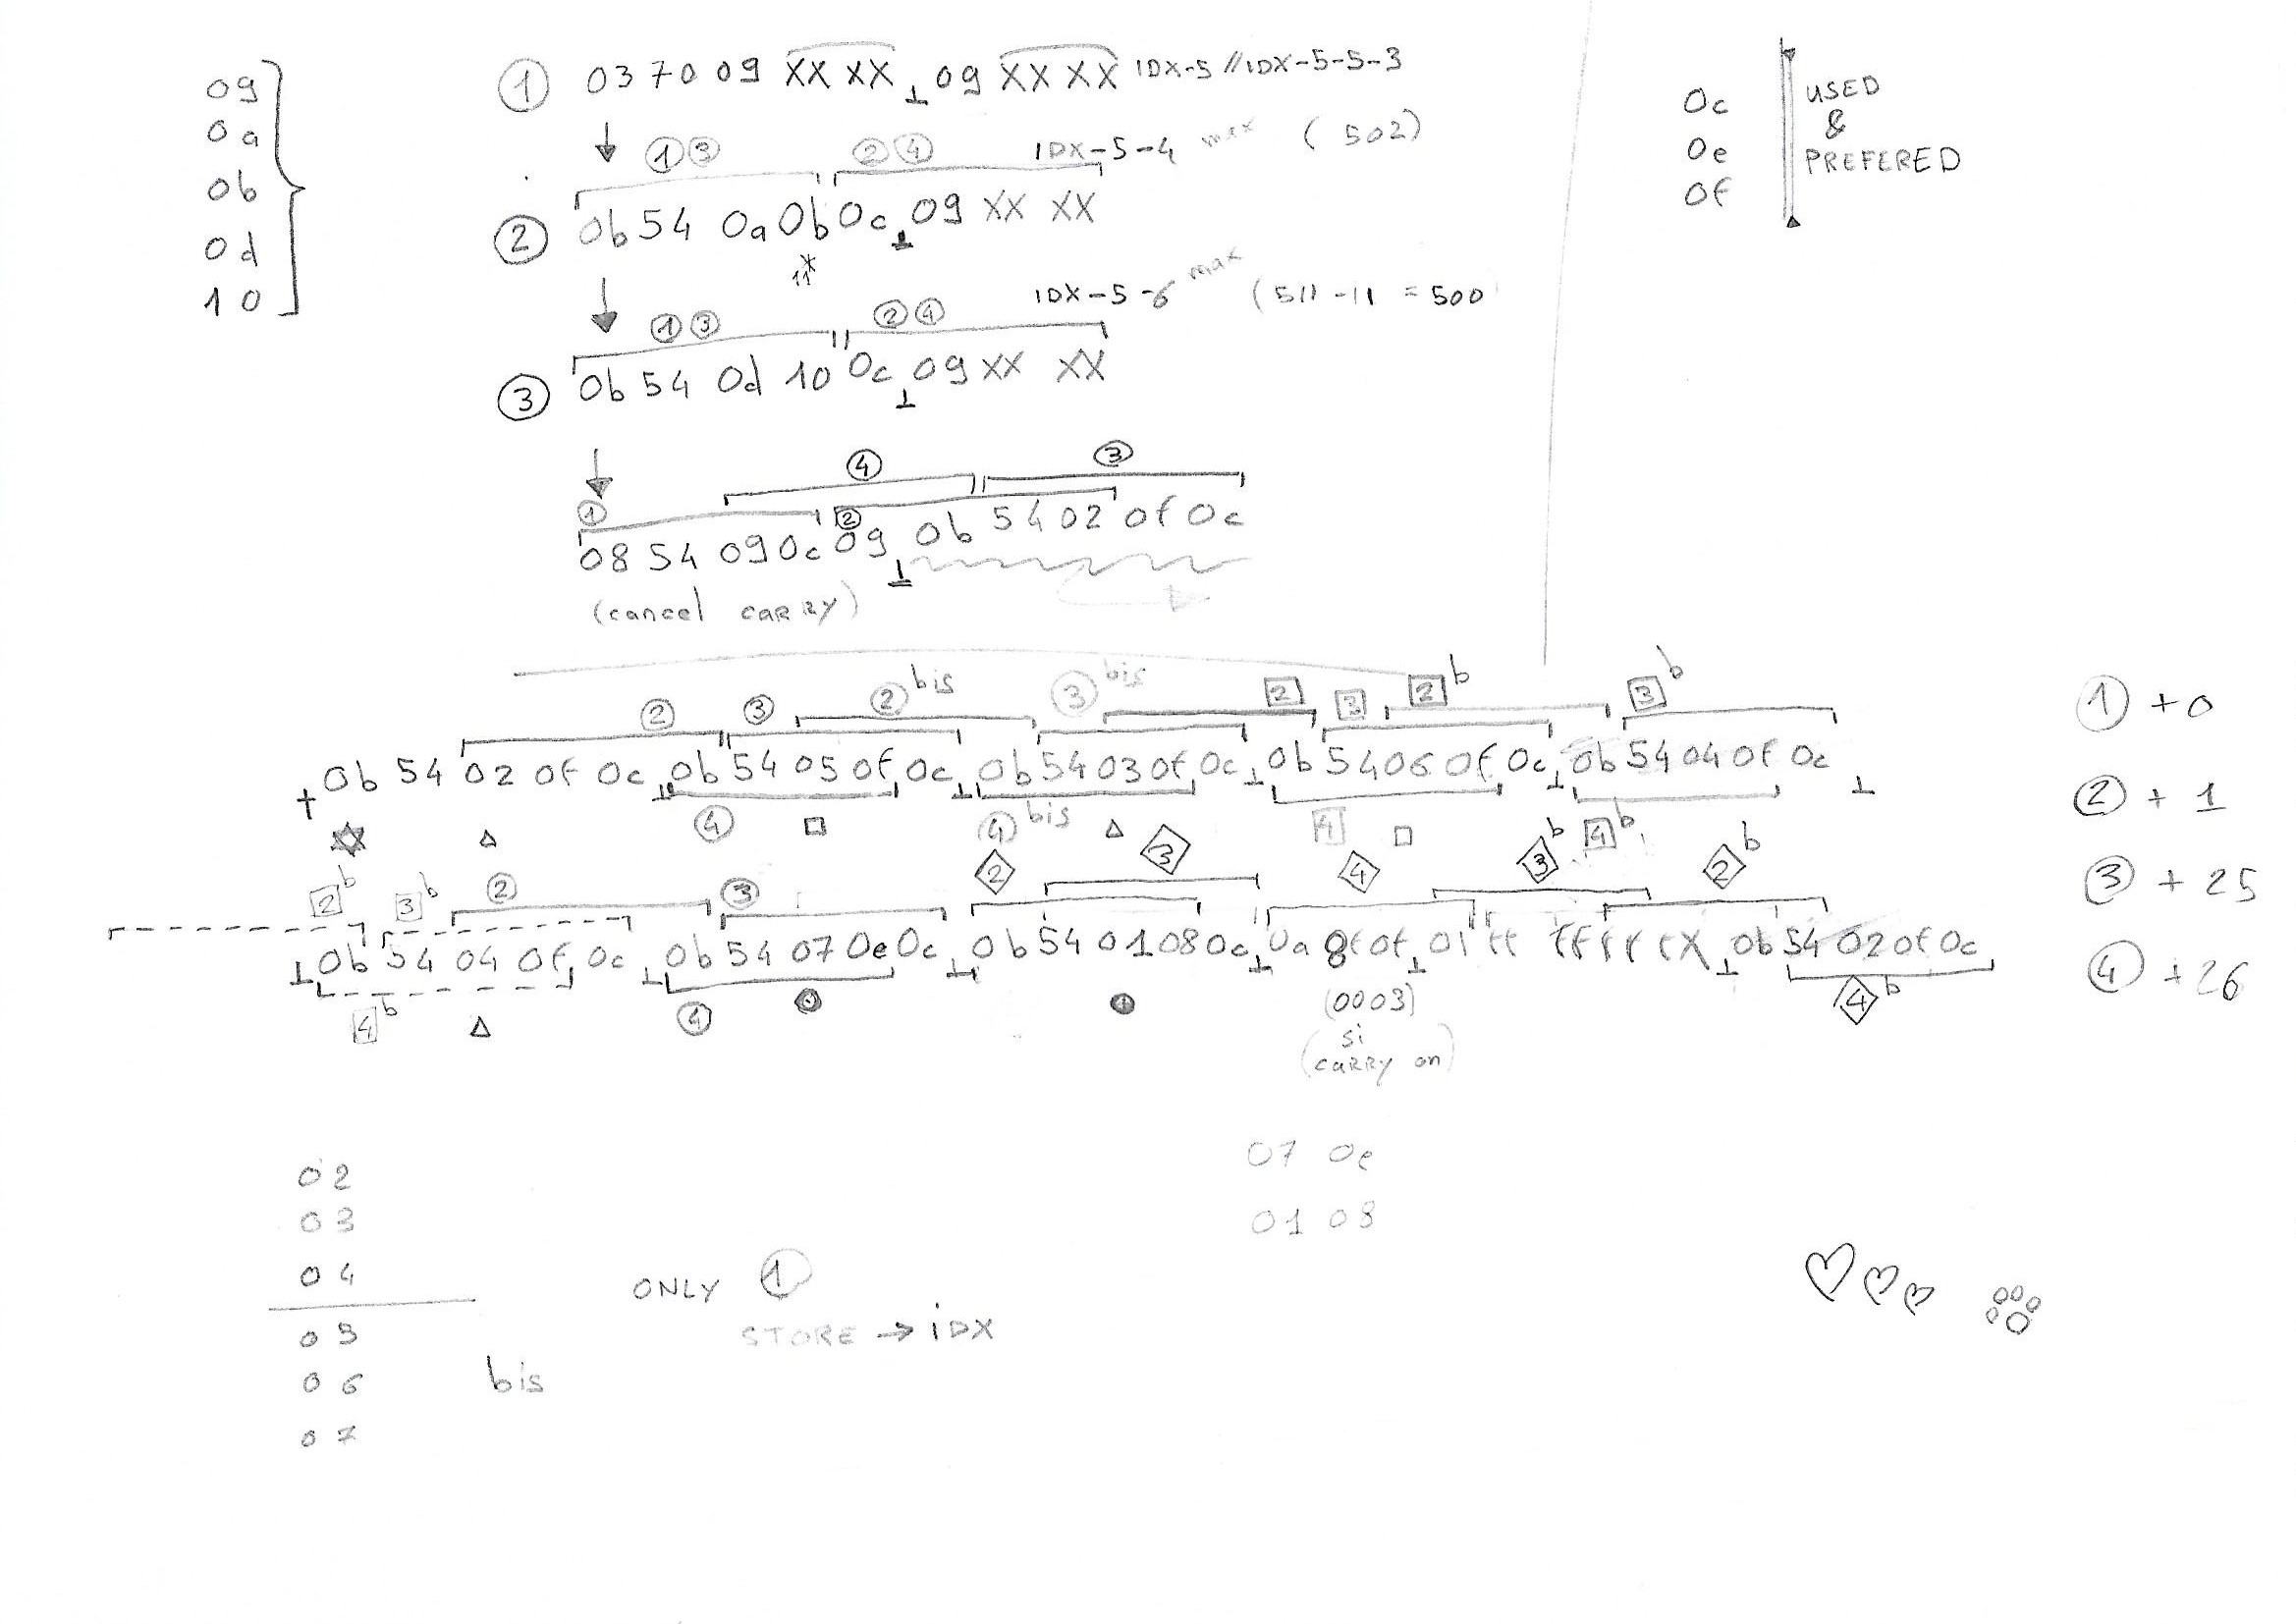 09
0a
0b
0d
10
① 03 70 09 XX XX 09 XX XX IDX-5 // IDX-5-5-3
①③ ②④ IDX-5-4 max (502)
② 0b 54 0a 0b 0c 09 XX XX
11*
①③ ②④ IDX-5-6 max (511 - 11 = 500
③ 0b 54 0d 10 0c 09 XX XX
④ ③
① ②
08 54 09 0c 09 0b 54 02 0f 0c
(cancel carry)
0c
0e
0f
USED
&
PREFERED
② ③ ② bis ③ bis 2 3 2 b 3 b
0b 54 02 0f 0c 0b 54 05 0f 0c 0b 54 03 0f 0c 0b 54 06 0f 0c 0b 54 04 0f 0c
④ ④ bis 4 4 b
2 b 3 b ② ③ 2 3 4 3 b 2 b
0b 54 04 0f 0c 0b 54 07 0e 0c 0b 54 01 08 0c 0a 8f 0f 01 ff ff ff fX 0b 54 02 0f 0c
4 b ④ (0003) 4 b
si
(carry on)
① + 0
② + 1
③ + 25
④ + 26
02
03
04
05
06
07
bis
ONLY ①
STORE → iDX
07 0e
01 08